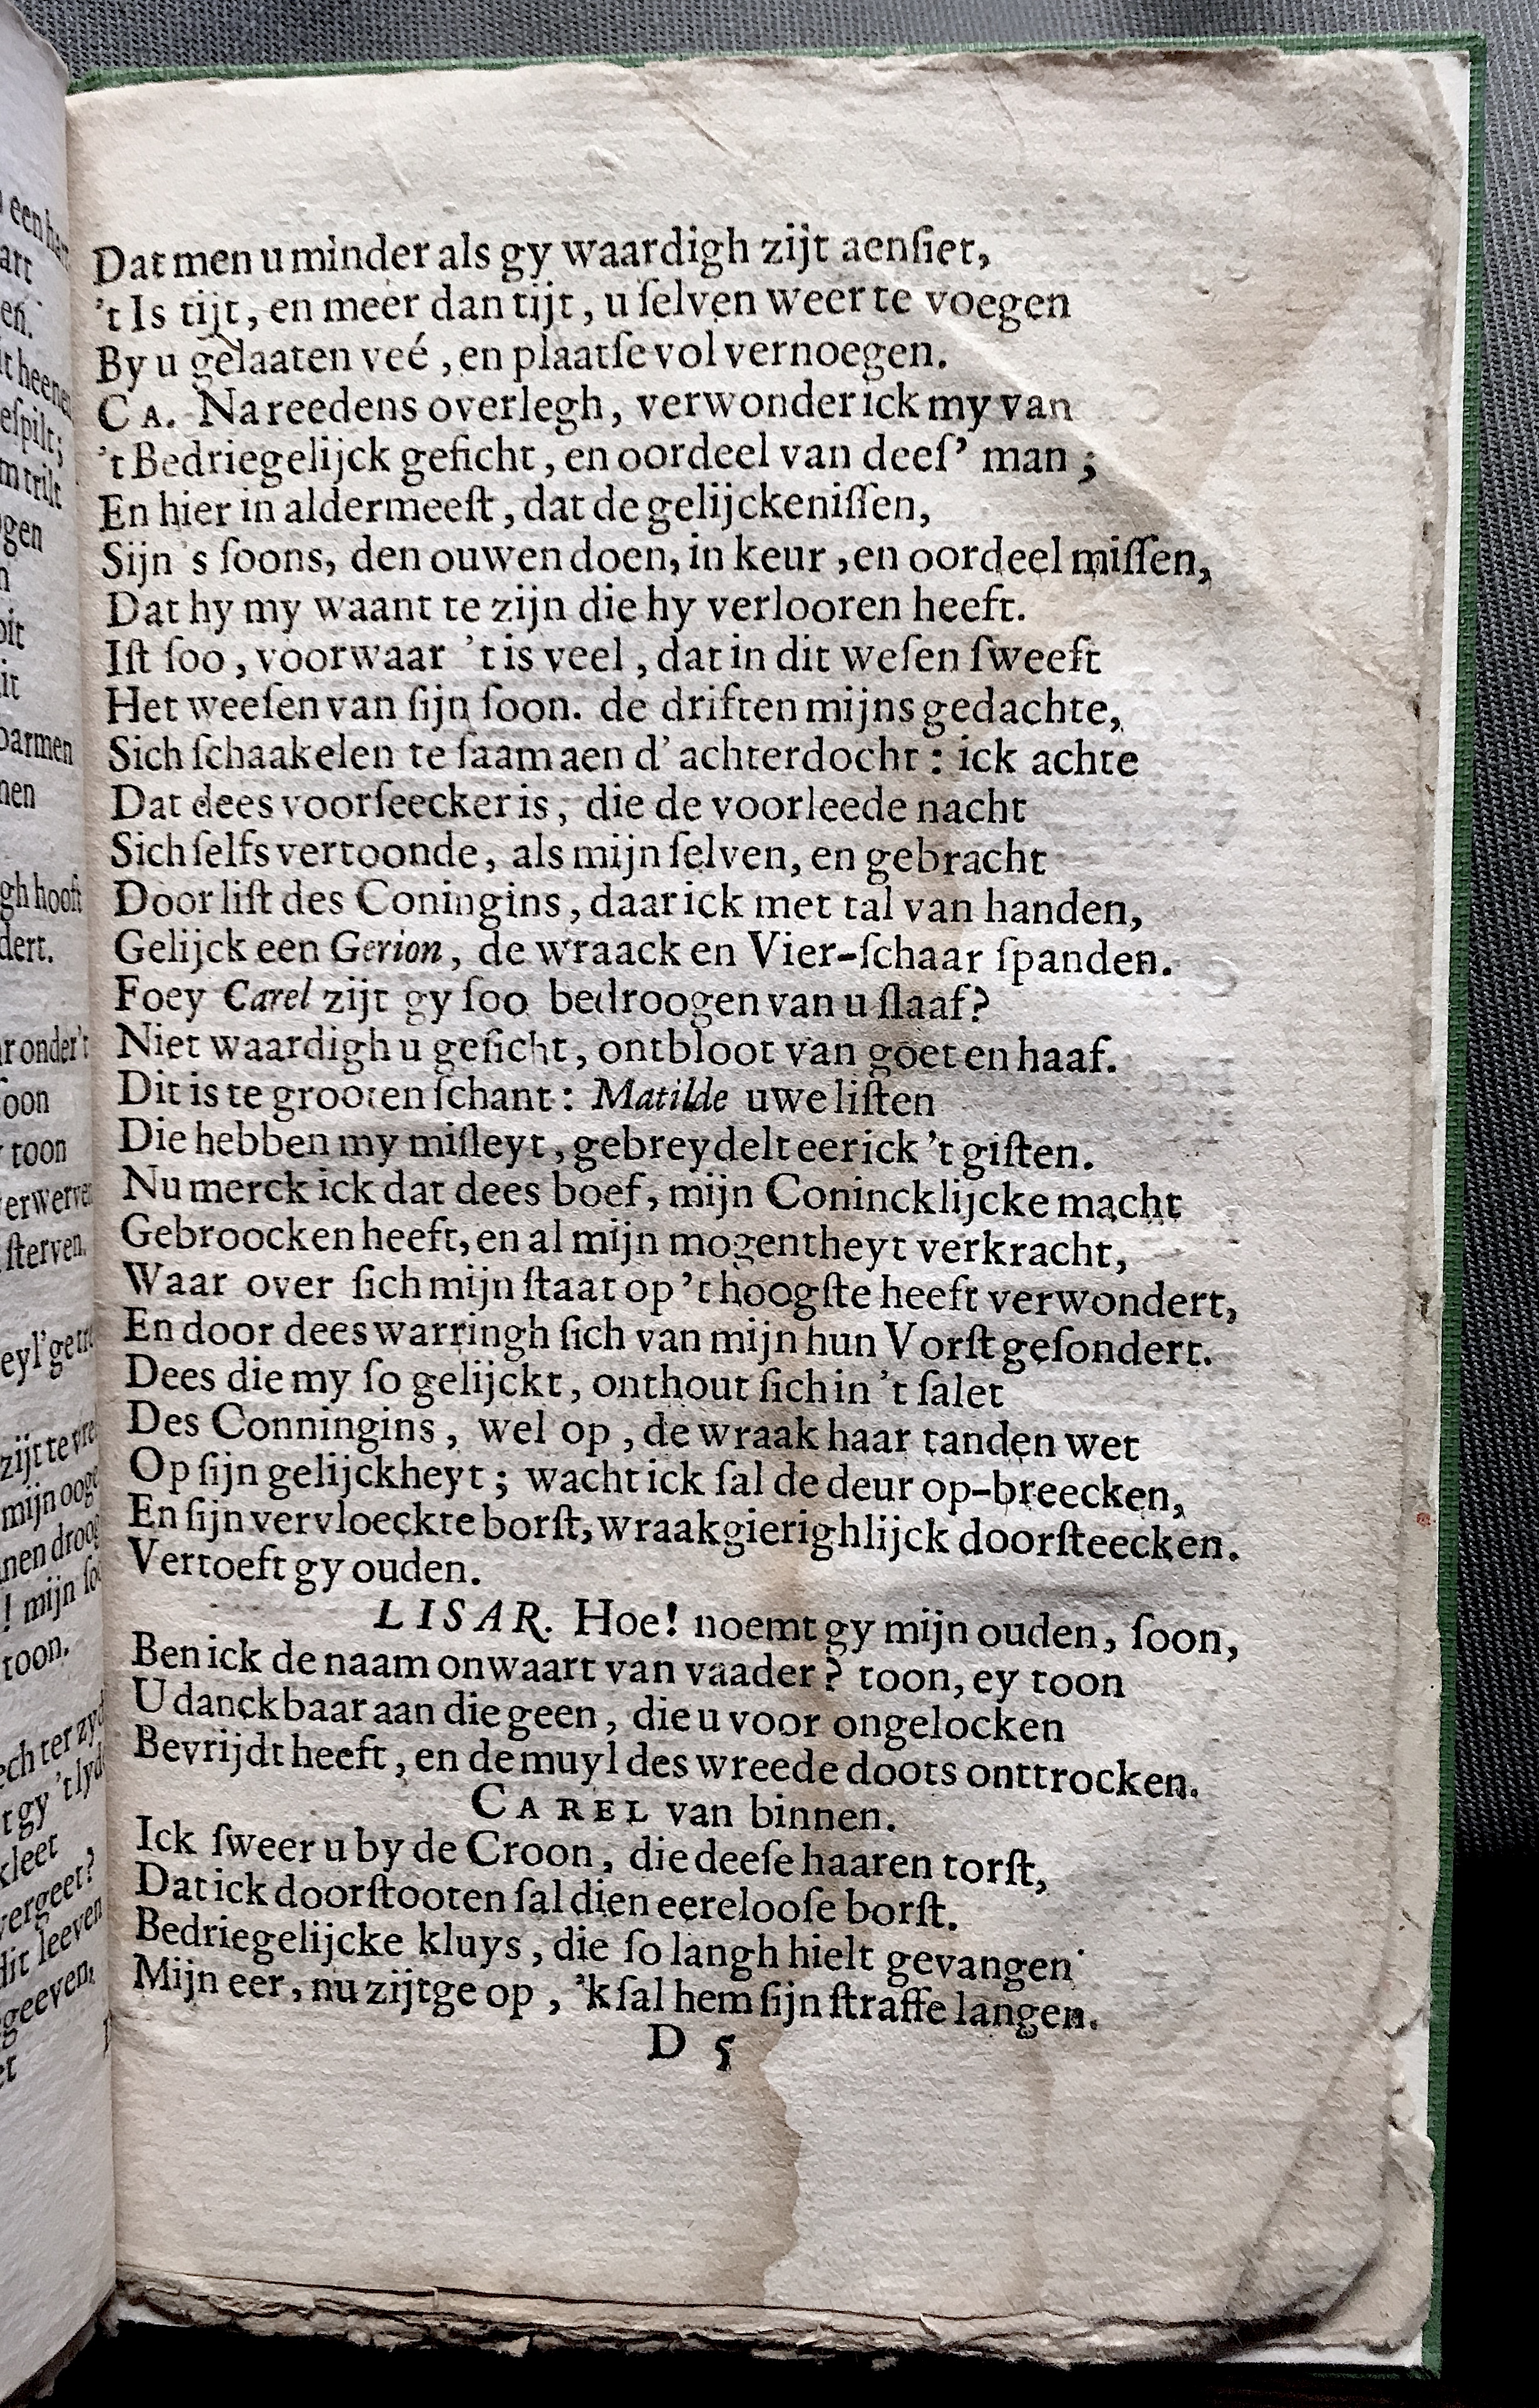 Dat men u minder als gy waardigh zijt aenſiet,
't Is tijt, en meer dan tijt, u ſelven weer te voegen
By u gelaaten veé, en plaatſe vol vernoegen.
CA. Na reedens overlegh, verwonder ick my van
't Bedriegelijck geſicht, en oordeel van deeſ' man;
En hier in aldermeeſt, dat de gelijckeniſſen,
Sijn 's ſoons, den ouwen doen, in keur, en oordeel miſſen,
Dat hy my waant te zijn die hy verlooren heeft.
Iſt ſoo, voorwaar 't is veel, dat in dit weſen ſweeft
Het weeſen van ſijn ſoon. de driften mijns gedachte,
Sich ſchaakelen te ſaam aen d' achterdocht: ick achte
Dat dees voorſeecker is, die de voorleede nacht
Sich ſelfs vertoonde, als mijn ſelven, en gebracht
Door liſt des Coningins, daar ick met tal van handen,
Gelijck een Gerion, de wraack en Vier-ſchaar ſpanden.
Foey Carel zijt gy ſoo bedroogen van u ſlaaf?
Niet waardigh u geſicht, ontbloot van goet en haaf.
Dit is te grooten ſchant: Matilde uwe liſten
Die hebben my miſleyt, gebreydelt eer ick 't giſten.
Nu merck ick dat dees boef, mijn Conincklijcke macht
Gebroocken heeft, en al mijn mogentheyt verkracht,
Waar over ſich mijn ſtaat op 't hoogſte heeft verwondert,
En door dees warringh ſich van mijn hun Vorſt geſondert.
Dees die my ſo gelijckt, onthout ſich in 't ſalet
Des Conningins, wel op, de wraak haar tanden wet
Op ſijn gelijckheyt; wacht ick ſal de deur op-breecken,
En ſijn vervloeckte borſt, wraakgierighlijck doorſteecken.
Vertoeft gy ouden.
LISAR. Hoe! noemt gy mijn ouden, ſoon,
Ben ick de naam onwaart van vaader? toon, ey toon
U danckbaar aan die geen, die u voor ongelocken
Bevrijdt heeft, en de muyl des wreede doots onttrocken.
CAREL van binnen.
Ick ſweer u by de Croon, die deeſe haaren torſt,
Dat ick doorſtooten ſal dien eerelooſe borſt.
Bedriegelijcke kluys, die ſo langh hielt gevangen
Mijn eer, nu zijtge op, 'k ſal hem ſijn ſtraffe langen.
D 5